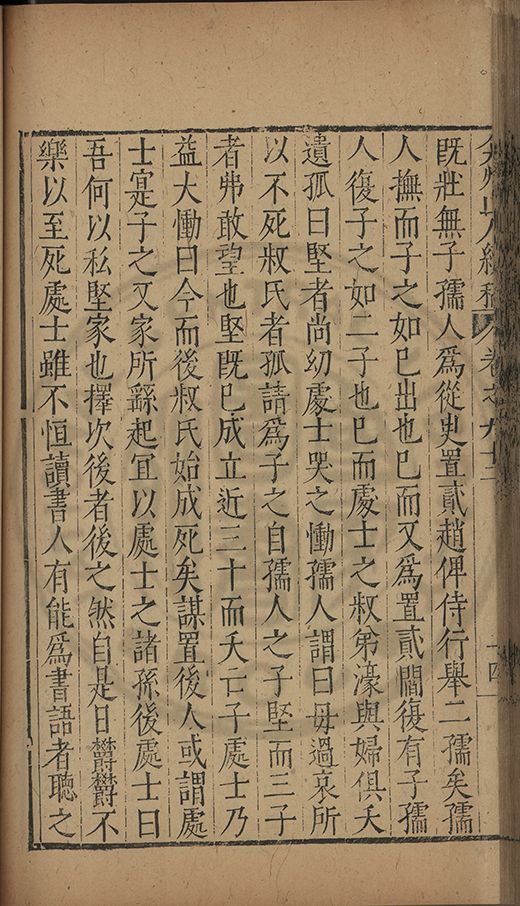 弇州山人續稿 卷之九十三 十四
既壯無子孺人爲從臾置貳趙俾侍行舉二孺矣孺
人撫而子之如已出也已而又爲置貳閻復有子孺
人復子之如二子也已而處士之叔弟濠與婦俱夭
遺孤曰堅者尚幼處士哭之慟孺人謂曰毋過哀所
以不死叔氏者孤請爲子之自孺人之子堅而三子
者弗敢望也堅既已成立近三十而夭亡子處士乃
益大慟曰今而後叔氏始成死矣謀置後人或謂處
士寔子之又家所繇起冝以處士之諸孫後處士曰
吾何以私堅家也擇次後者後之然自是日鬱鬱不
樂以至死處士雖不恒讀書人有能爲書語者聽之